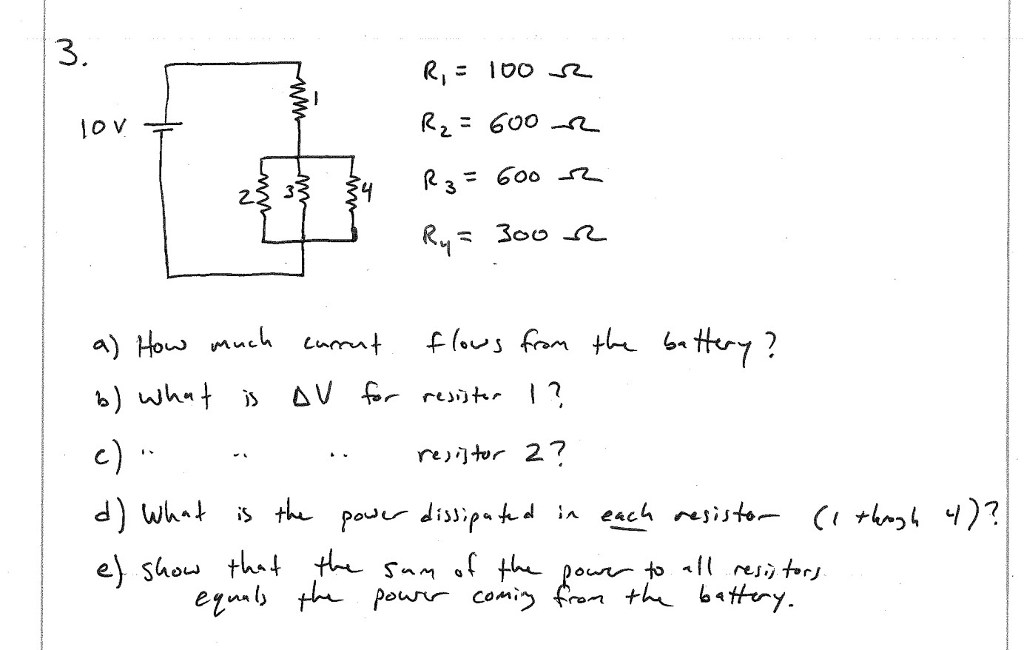 3.
R₁ = 100 Ω
1
10 V
R₂ = 600 Ω
2 3 4
R₃ = 600 Ω
R₄ = 300 Ω
a) How much current flows from the battery?
b) What is ΔV for resistor 1?
c) " " " resistor 2?
d) What is the power dissipated in each resistor (1 through 4)?
e) show that the sum of the power to all resistors
equals the power coming from the battery.